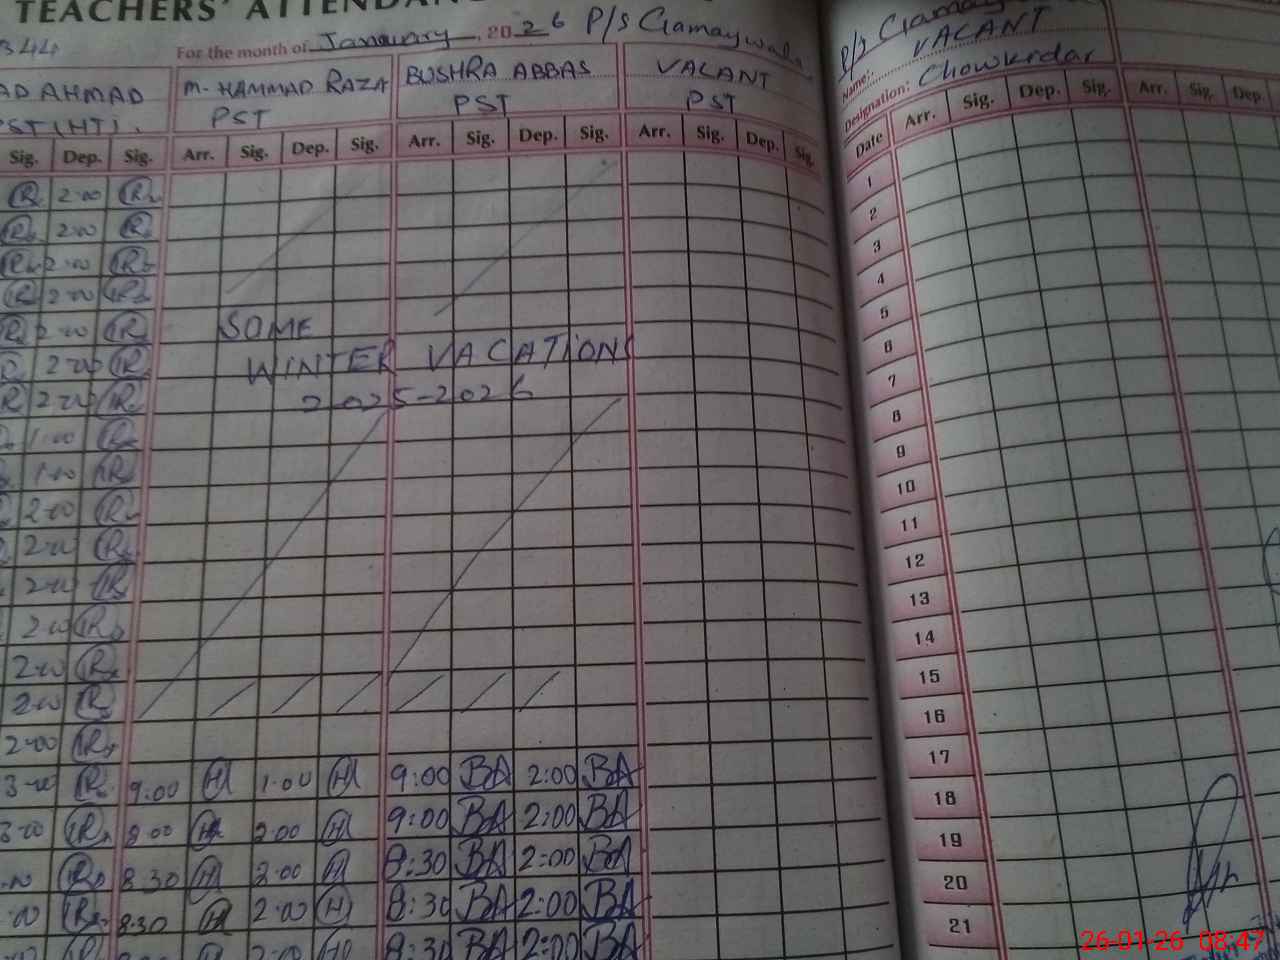 TEACHERS' ATTENDAN
344
For the month of January 2026 P/S
AD AHMAD
PST (HT).
M. HAMMAD RAZA
PST
BUSHRA ABBAS
PST
VACANT
PST
Sig. Dep. Sig. Arr. Sig. Dep. Sig. Arr. Sig. Dep. Sig. Arr. Sig. Dep. Sig.
2:00
2:00
2:00
2:00
2:00
2:00
2:00
1:00
1:00
2:00
2:00
2:00
2:00
2:00
2:00
2:00
SOME
WINTER VACATIONS
2025-2026
3:00 9:00 H 1:00 H 9:00 BA 2:00 BA
3:00 H 2:00 H 9:00 BA 2:00 BA
8:30 H 2:00 H 8:30 BA 2:00 BA
8:30 H 2:00 H 8:30 BA 2:00 BA
8:30 BA 2:00 BA
P/S
Name: VACANT
Designation: Chowkidar
Date Arr. Sig. Dep. Sig. Arr. Sig. Dep.
1
2
3
4
5
6
7
8
9
10
11
12
13
14
15
16
17
18
19
20
21
26-01-26 08:47